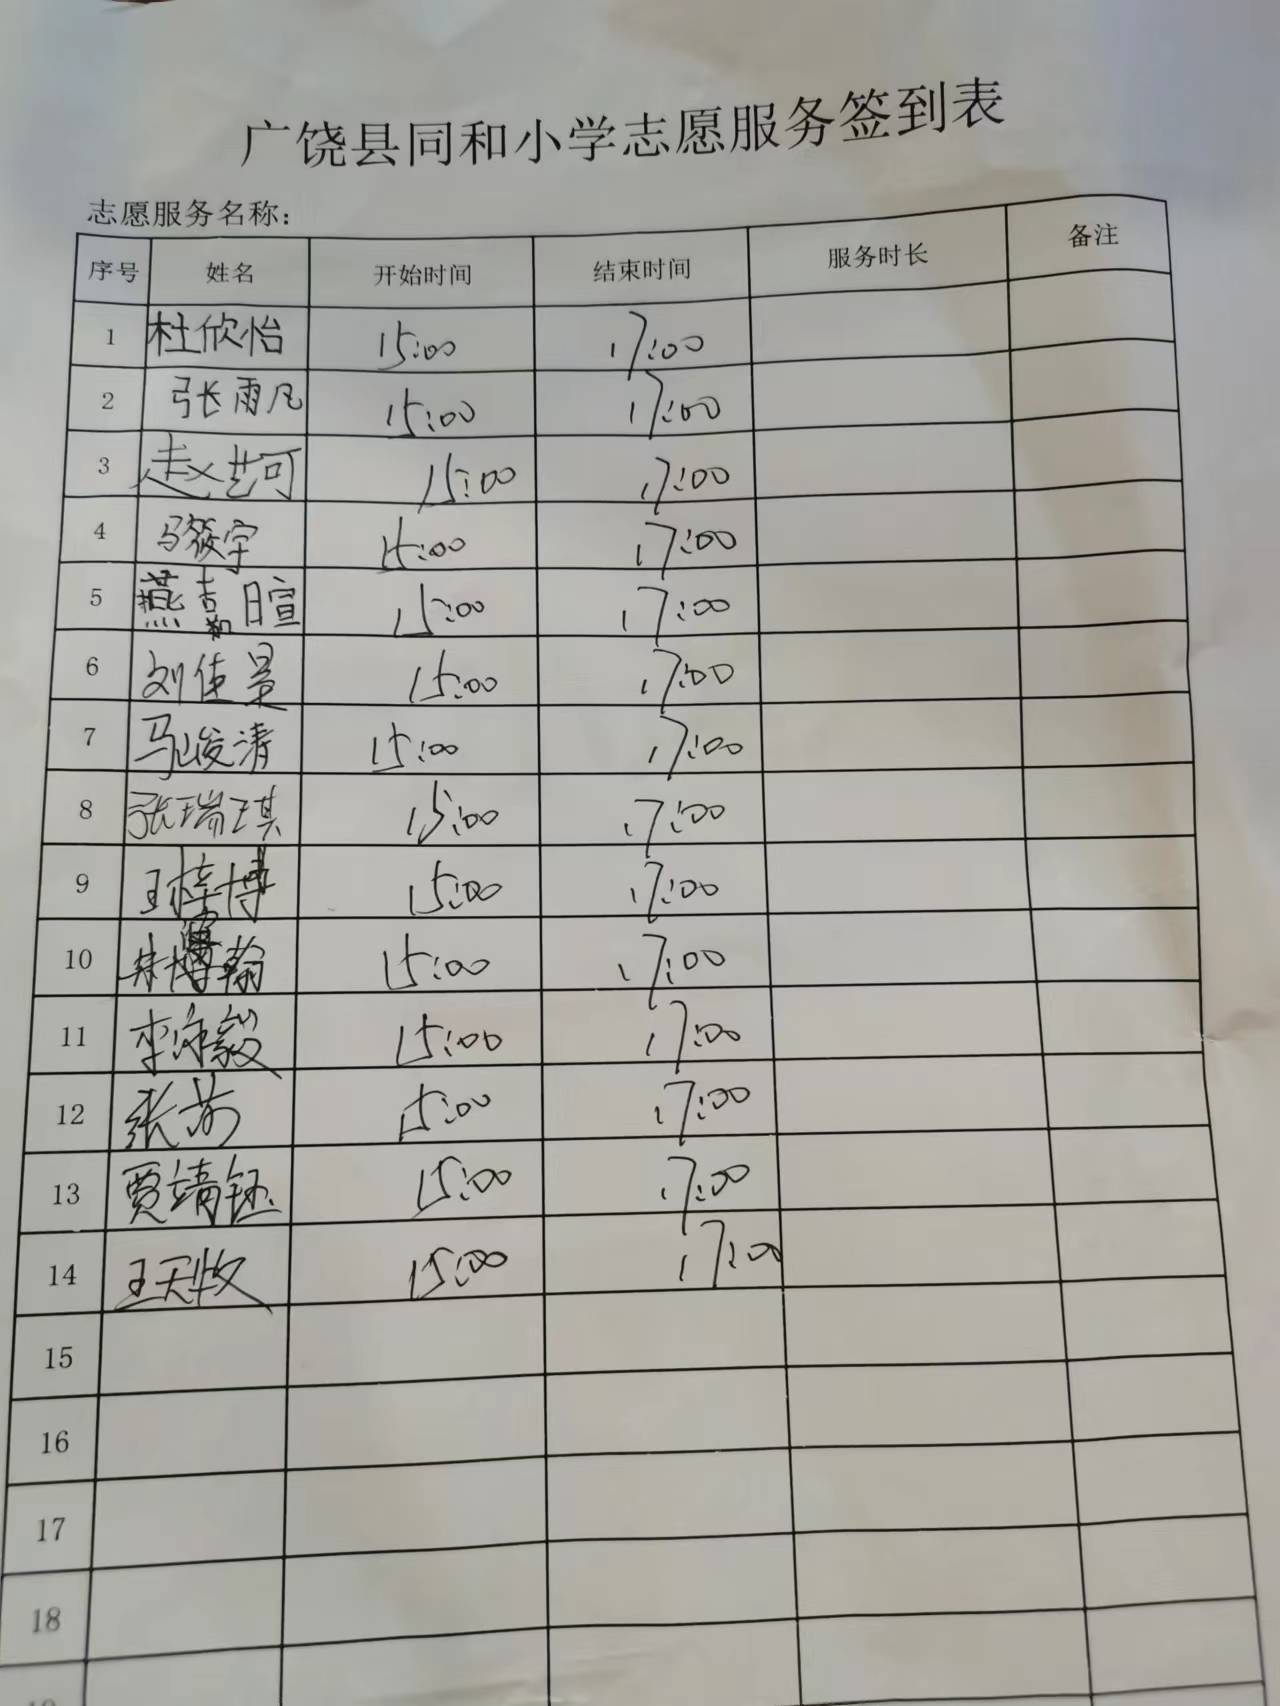 广饶县同和小学志愿服务签到表
志愿服务名称：
序号 姓名 开始时间 结束时间 服务时长 备注
1 杜欣怡 15:00 17:00
2 张雨凡 15:00 17:00
3 赵艺可 15:00 17:00
4 马筱宇 15:00 17:00
5 燕嘉暄 15:00 17:00
6 刘佳景 15:00 17:00
7 马峻清 15:00 17:00
8 张瑞琪 15:00 17:00
9 王梓博 15:00 17:00
10 15:00 17:00
11 15:00 17:00
12 15:00 17:00
13 贾靖钰 15:00 17:00
14 王天牧 15:00 17:00
15
16
17
18
19